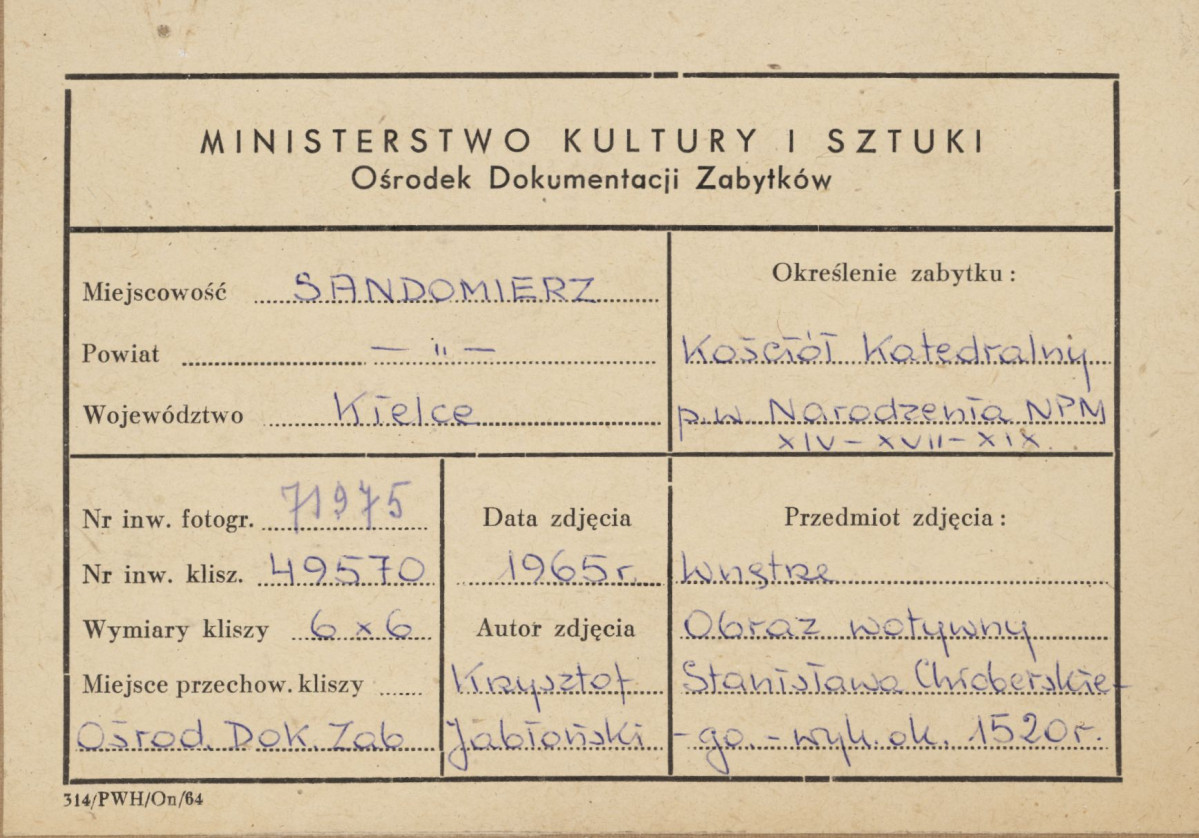 MINISTERSTWO KULTURY I SZTUKI
Ośrodek Dokumentacji Zabytków
Miejscowość SANDOMIERZ
Powiat — " —
Województwo Kielce
Określenie zabytku:
Kościół Katedralny
p.w. Narodzenia NPM
XIV – XVII – XIX
Nr inw. fotogr. 71975
Nr inw. klisz. 49570
Wymiary kliszy 6 x 6
Miejsce przechow. kliszy
Ośrod. Dok. Zab
Data zdjęcia
1965 r.
Autor zdjęcia
Krzysztof
Jabłoński
Przedmiot zdjęcia:
Wnętrze
Obraz wotywny
Stanisława Chroberskie-
-go. – wyk. ok. 1520 r.
314/PWH/On/64